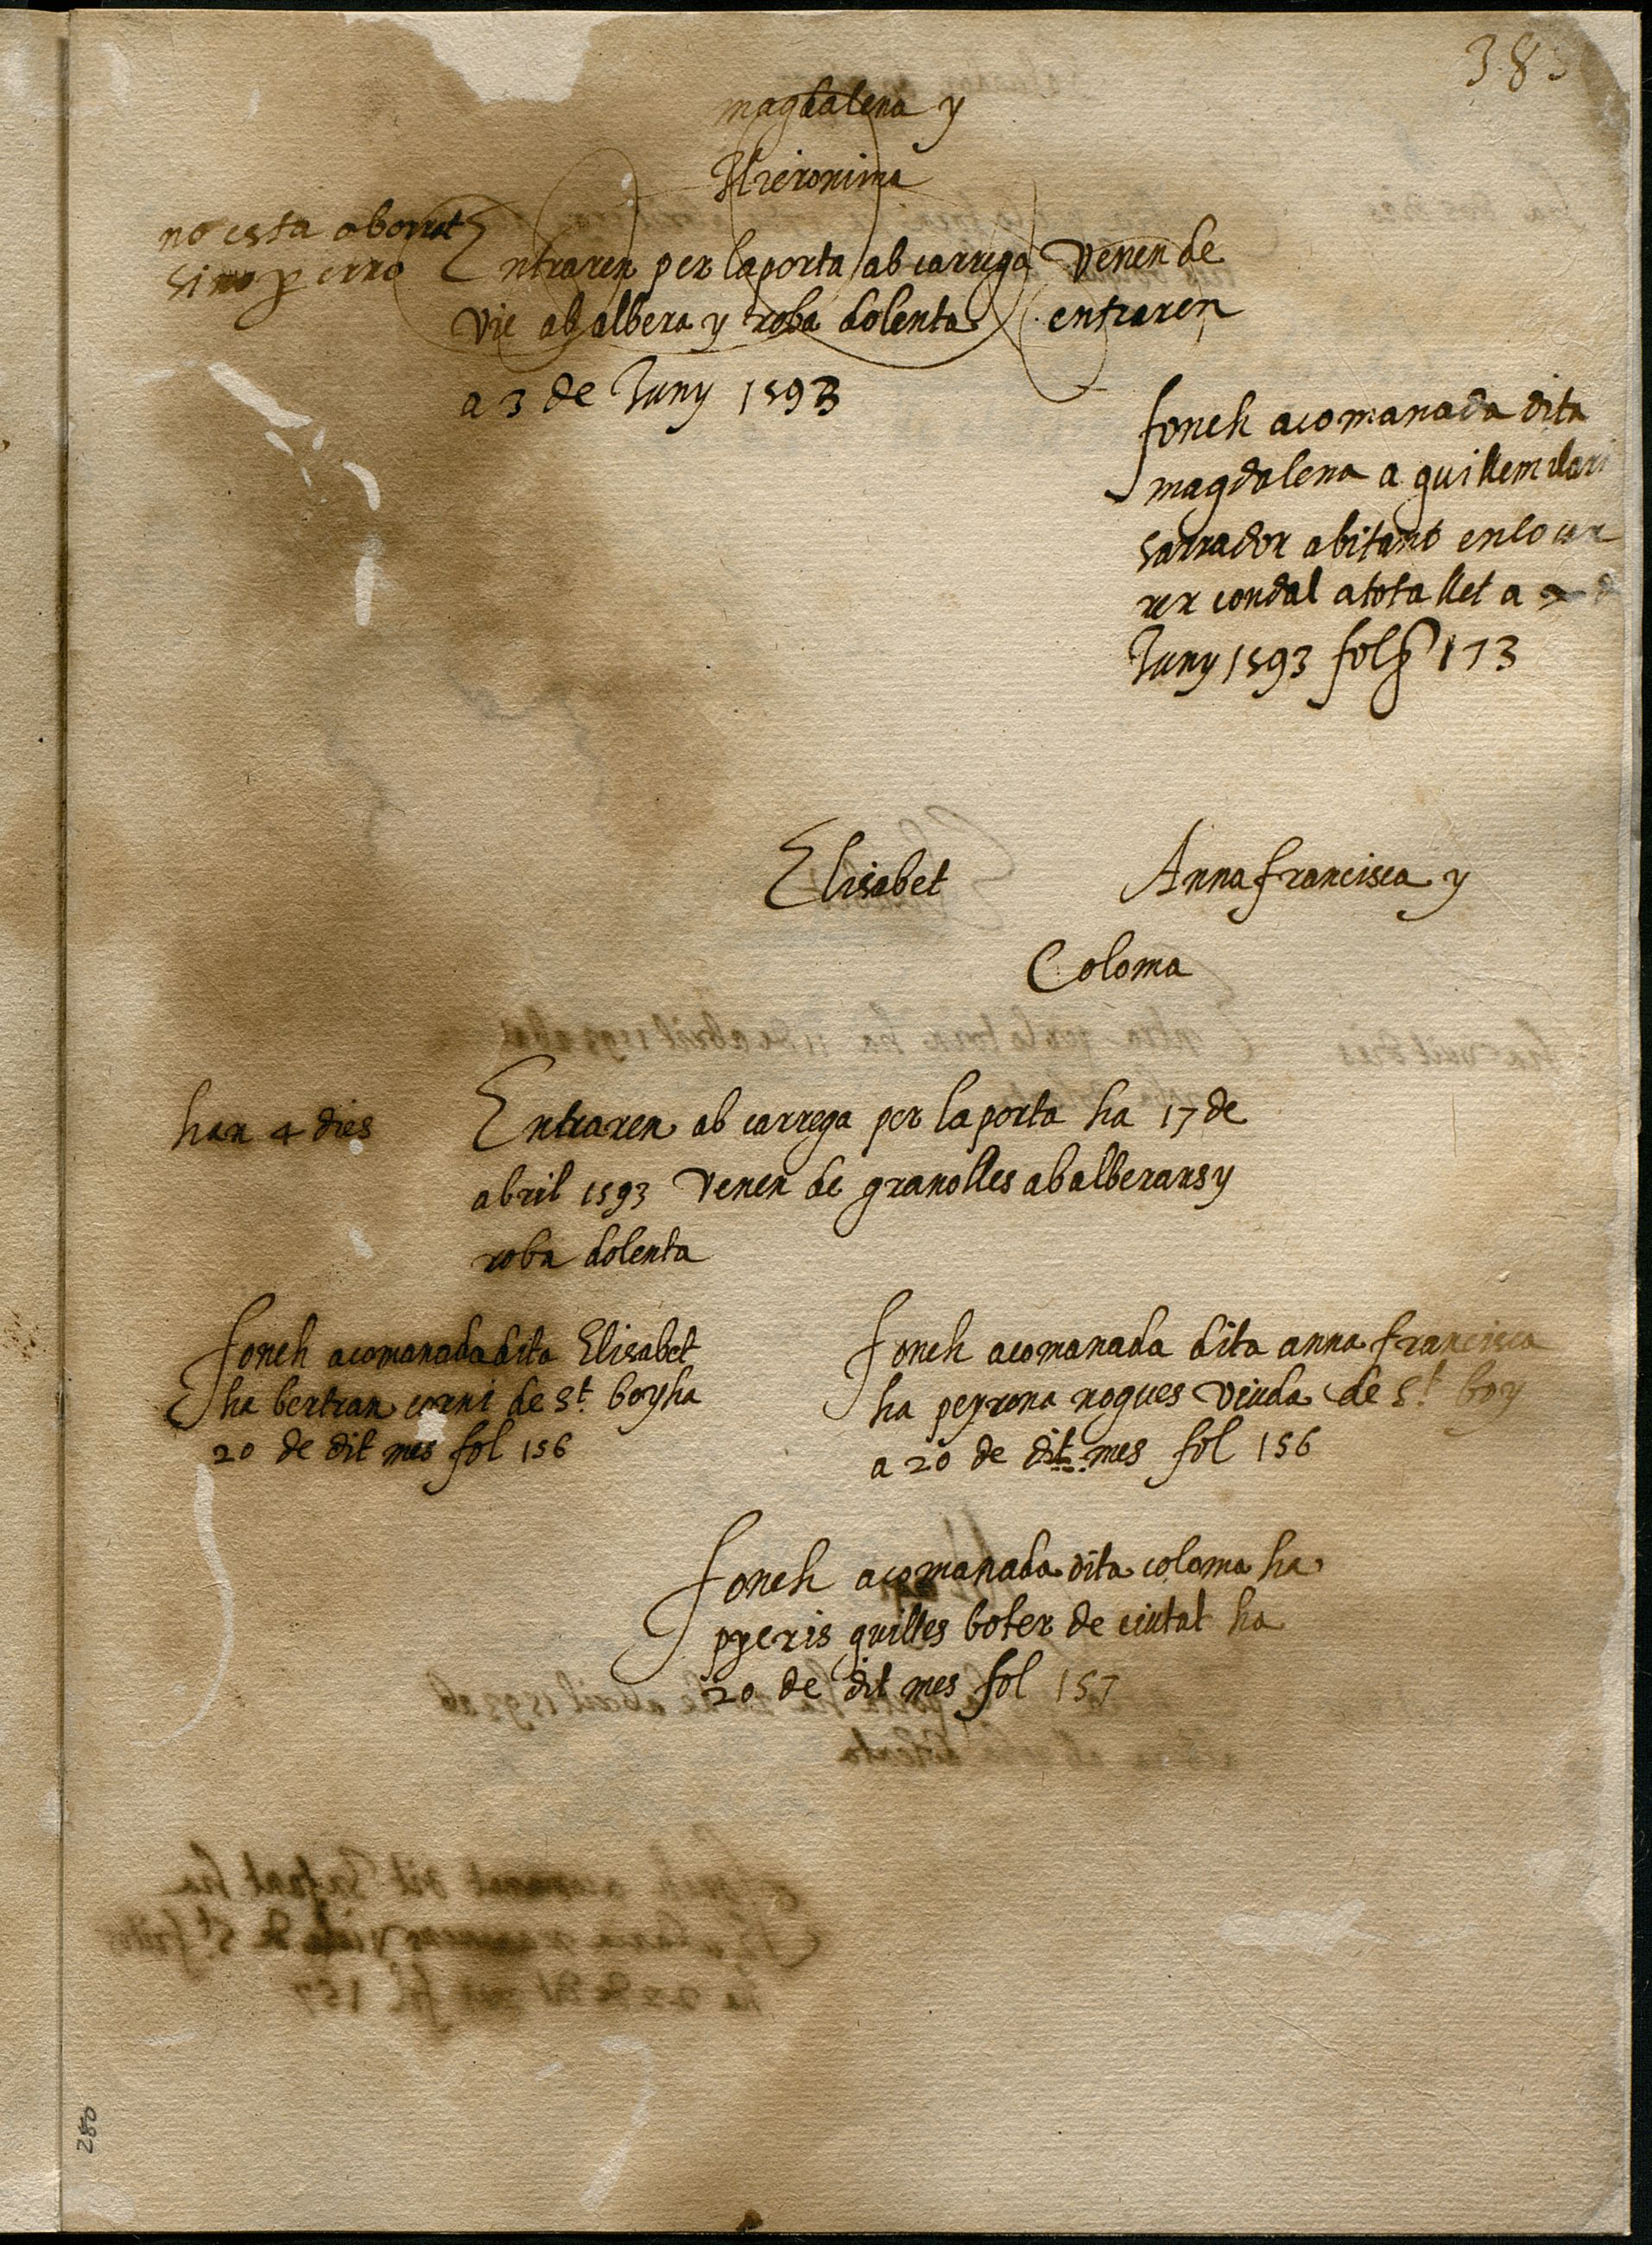 383
magdalena y
Hieronima
no esta aborrat
sino p erro
Entraren per laporta ab carrega venen de
vic ab albera y roba dolenta entraren
a 3 de Juny 1593
fonch acomanada dita
magdalena a guillem
sarrador abitant enlo car
rer condal atota llet a
Juny 1593 fol 173
Elisabet
Anna francisca y
Coloma
han 4 dies
Entraren ab carrega per laporta ha 17 de
abril 1593 venen de granolles abalberans y
roba dolenta
fonch acomanada dita Elisabet
ha bertran corni de St. boy ha
20 de dit mes fol 156
fonch acomanada dita anna francisca
ha peyrona nogues viuda de St. boy
a 20 de dit mes fol 156
fonch acomanada dita coloma ha
pyeris guilles boter de ciutat ha
20 de dit mes fol 157
280